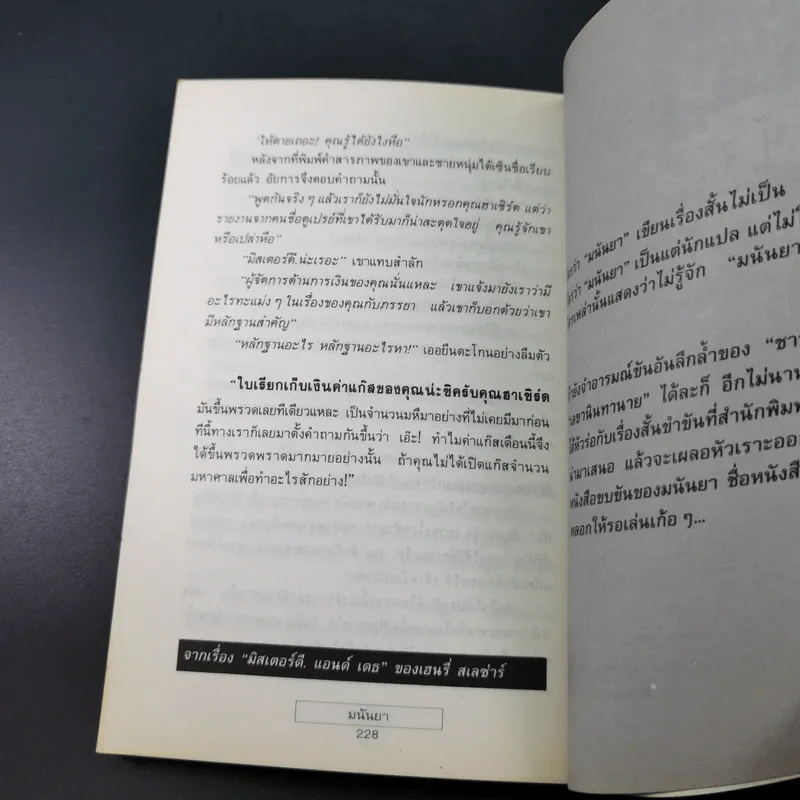 ให้ตายเถอะ! คุณรู้ได้ยังไงหือ"
หลังจากที่พิมพ์คำสารภาพของเขาและชายหนุ่มได้เซ็นชื่อเรียบ
ร้อยแล้ว อัยการจึงตอบคำถามนั้น
"พูดกันจริง ๆ แล้วเราก็ยังไม่มั่นใจนักหรอกคุณฮาเซิร์ด แต่ว่า
รายงานจากคนชื่อดูเปรย์ที่เขาได้รับมาก็น่าสะดุดใจอยู่ คุณรู้จักเขา
หรือเปล่าหือ"
"มิสเตอร์ดี.น่ะเรอะ" เขาแทบสำลัก
"ผู้จัดการด้านการเงินของคุณนั่นแหละ เขาแจ้งมายังเราว่ามี
อะไรทะแม่ง ๆ ในเรื่องของคุณกับภรรยา แล้วเขาก็บอกด้วยว่าเขา
มีหลักฐานสำคัญ"
"หลักฐานอะไร หลักฐานอะไรหา!" เออยีนตะโกนอย่างลืมตัว
"ใบเรียกเก็บเงินค่าแก๊สของคุณน่ะซิครับคุณฮาเซิร์ด
มันขึ้นพรวดเลยทีเดียวแหละ เป็นจำนวนมหึมาอย่างที่ไม่เคยมีมาก่อน
ทีนี้ทางเราก็เลยมาตั้งคำถามกันขึ้นว่า เอ๊ะ! ทำไมค่าแก๊สเดือนนี้จึง
ได้ขึ้นพรวดพราดมากมายอย่างนั้น ถ้าคุณไม่ได้เปิดแก๊สจำนวน
มหาศาลเพื่อทำอะไรสักอย่าง!"
จากเรื่อง "มิสเตอร์ดี. แอนด์ เดธ" ของเฮนรี่ สเลซ่าร์
มนันยา
228
ว่า "มนันยา" เขียนเรื่องสั้นไม่เป็น
ว่า "มนันยา" เป็นแต่นักแปล แต่ไม่ใ
เหล่านั้นแสดงว่าไม่รู้จัก "มนันยา
ยังจำอารมณ์ขันอันลึกล้ำของ "ชาว
นินทานาย" ได้ละก็ อีกไม่นาน
ได้หัวร่อกับเรื่องสั้นขำขันที่สำนักพิมพ์
นำมาเสนอ แล้วจะเผลอหัวเราะออก
หนังสือขบขันของมนันยา ชื่อหนังสือ
หลอกให้รอเล่นเก้อ ๆ...